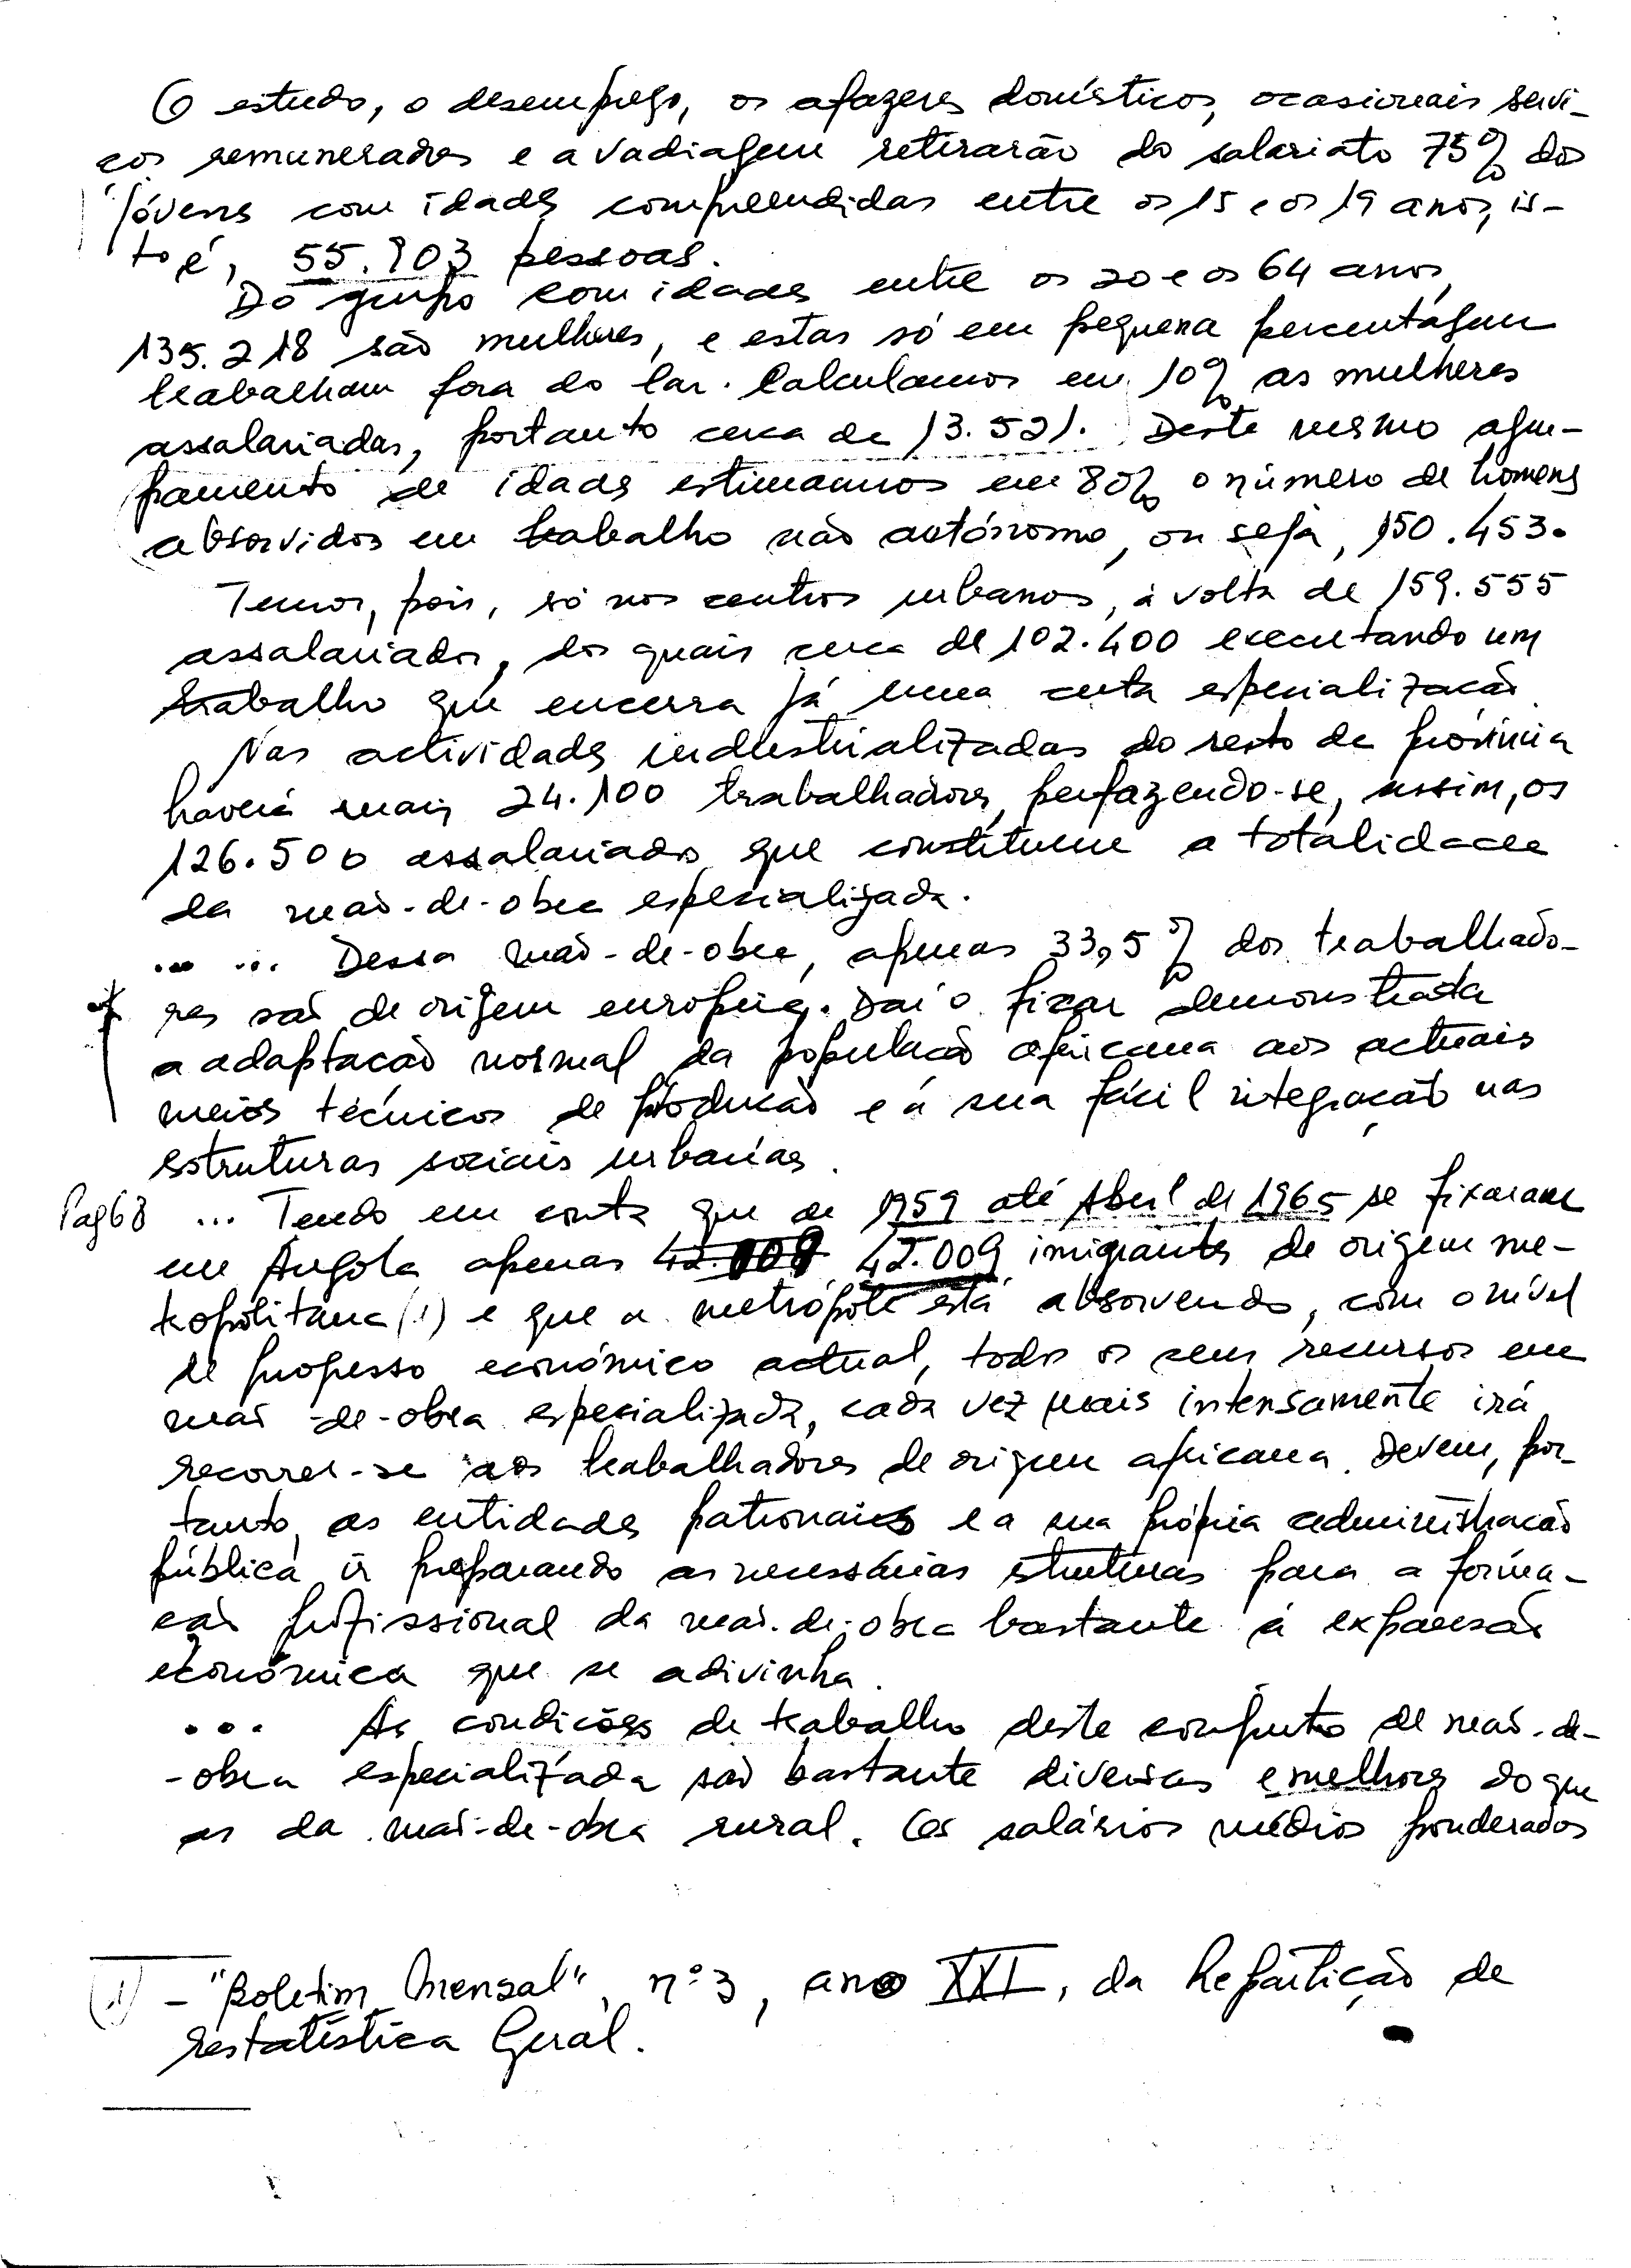 O estudo, o desemprego, os afazeres domésticos, ocasionais servi-
ços remunerados e a vadiagem retirarão do salariato 75% dos
jóvens com idades compreendidas entre os 15 e os 19 anos, is-
to é, 55.903 pessoas.
Do grupo com idades entre os 20 e os 64 anos,
135.218 são mulheres, e estas só em pequena percentágem
trabalham fora do lar. Calculamos em 10% as mulheres
assalariadas, portanto cerca de 13.521. Deste mesmo agru-
pamento de idades estimamos em 80% o número de homens
absorvidos em trabalho não autónomo, ou seja, 150.453.
Temos, pois, só nos centros urbanos, à volta de 159.555
assalariados, dos quais cerca de 102.400 executando um
trabalho que encerra já uma certa especialização.
Nas actividades industrializadas do resto da província
haverá mais 24.100 trabalhadores, perfazendo-se, assim, os
126.500 assalariados que constituem a totalidade
da mão-de-obra especializada.
... ... Dessa mão-de-obra, apenas 33,5% dos trabalhado-
res são de origem europeia. Daí o ficar demonstrada
a adaptação normal da população africana aos actuais
meios técnicos de produção e a sua fácil integração nas
estruturas sociais urbanas.
Pag 68 ... Tendo em conta que de 1959 até Abril de 1965 se fixaram
em Angola apenas 42.009 42.009 imigrantes de origem me-
tropolitana (1) e que a metrópole está absorvendo, com o nível
de progresso económico actual, todos os seus recursos em
mão-de-obra especializada, cada vez mais intensamente irá
recorrer-se aos trabalhadores de origem africana. Devem, por-
tanto, as entidades patronais e a sua própria administração
pública ir preparando as necessárias estruturas para a forma-
ção profissional da mão-de-obra bastante à expansão
económica que se adivinha.
... As condições de trabalho deste conjunto de mão-de-
-obra especializada são bastante diversas e melhores do que
as da mão-de-obra rural. Os salários médios ponderados
(1) - "Boletim Mensal", nº 3, ano XXI, da Repartição de
Estatística Geral.